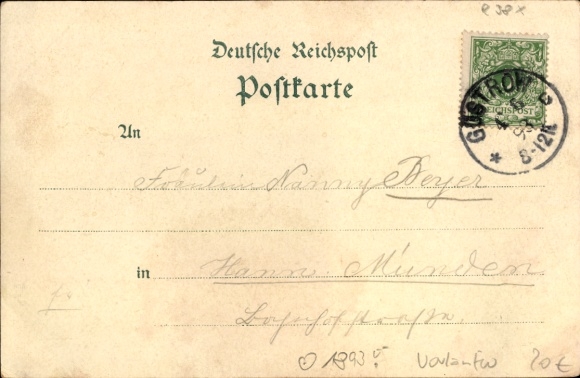 e 38x
Deutsche Reichspost
Postkarte
REICHSPOST
GÜSTROW
8-12N
*
An
Fräulein Nanny Beyer
in
Hann. Münden
Bahnhofstraße.
1893
Vorläufer
20€